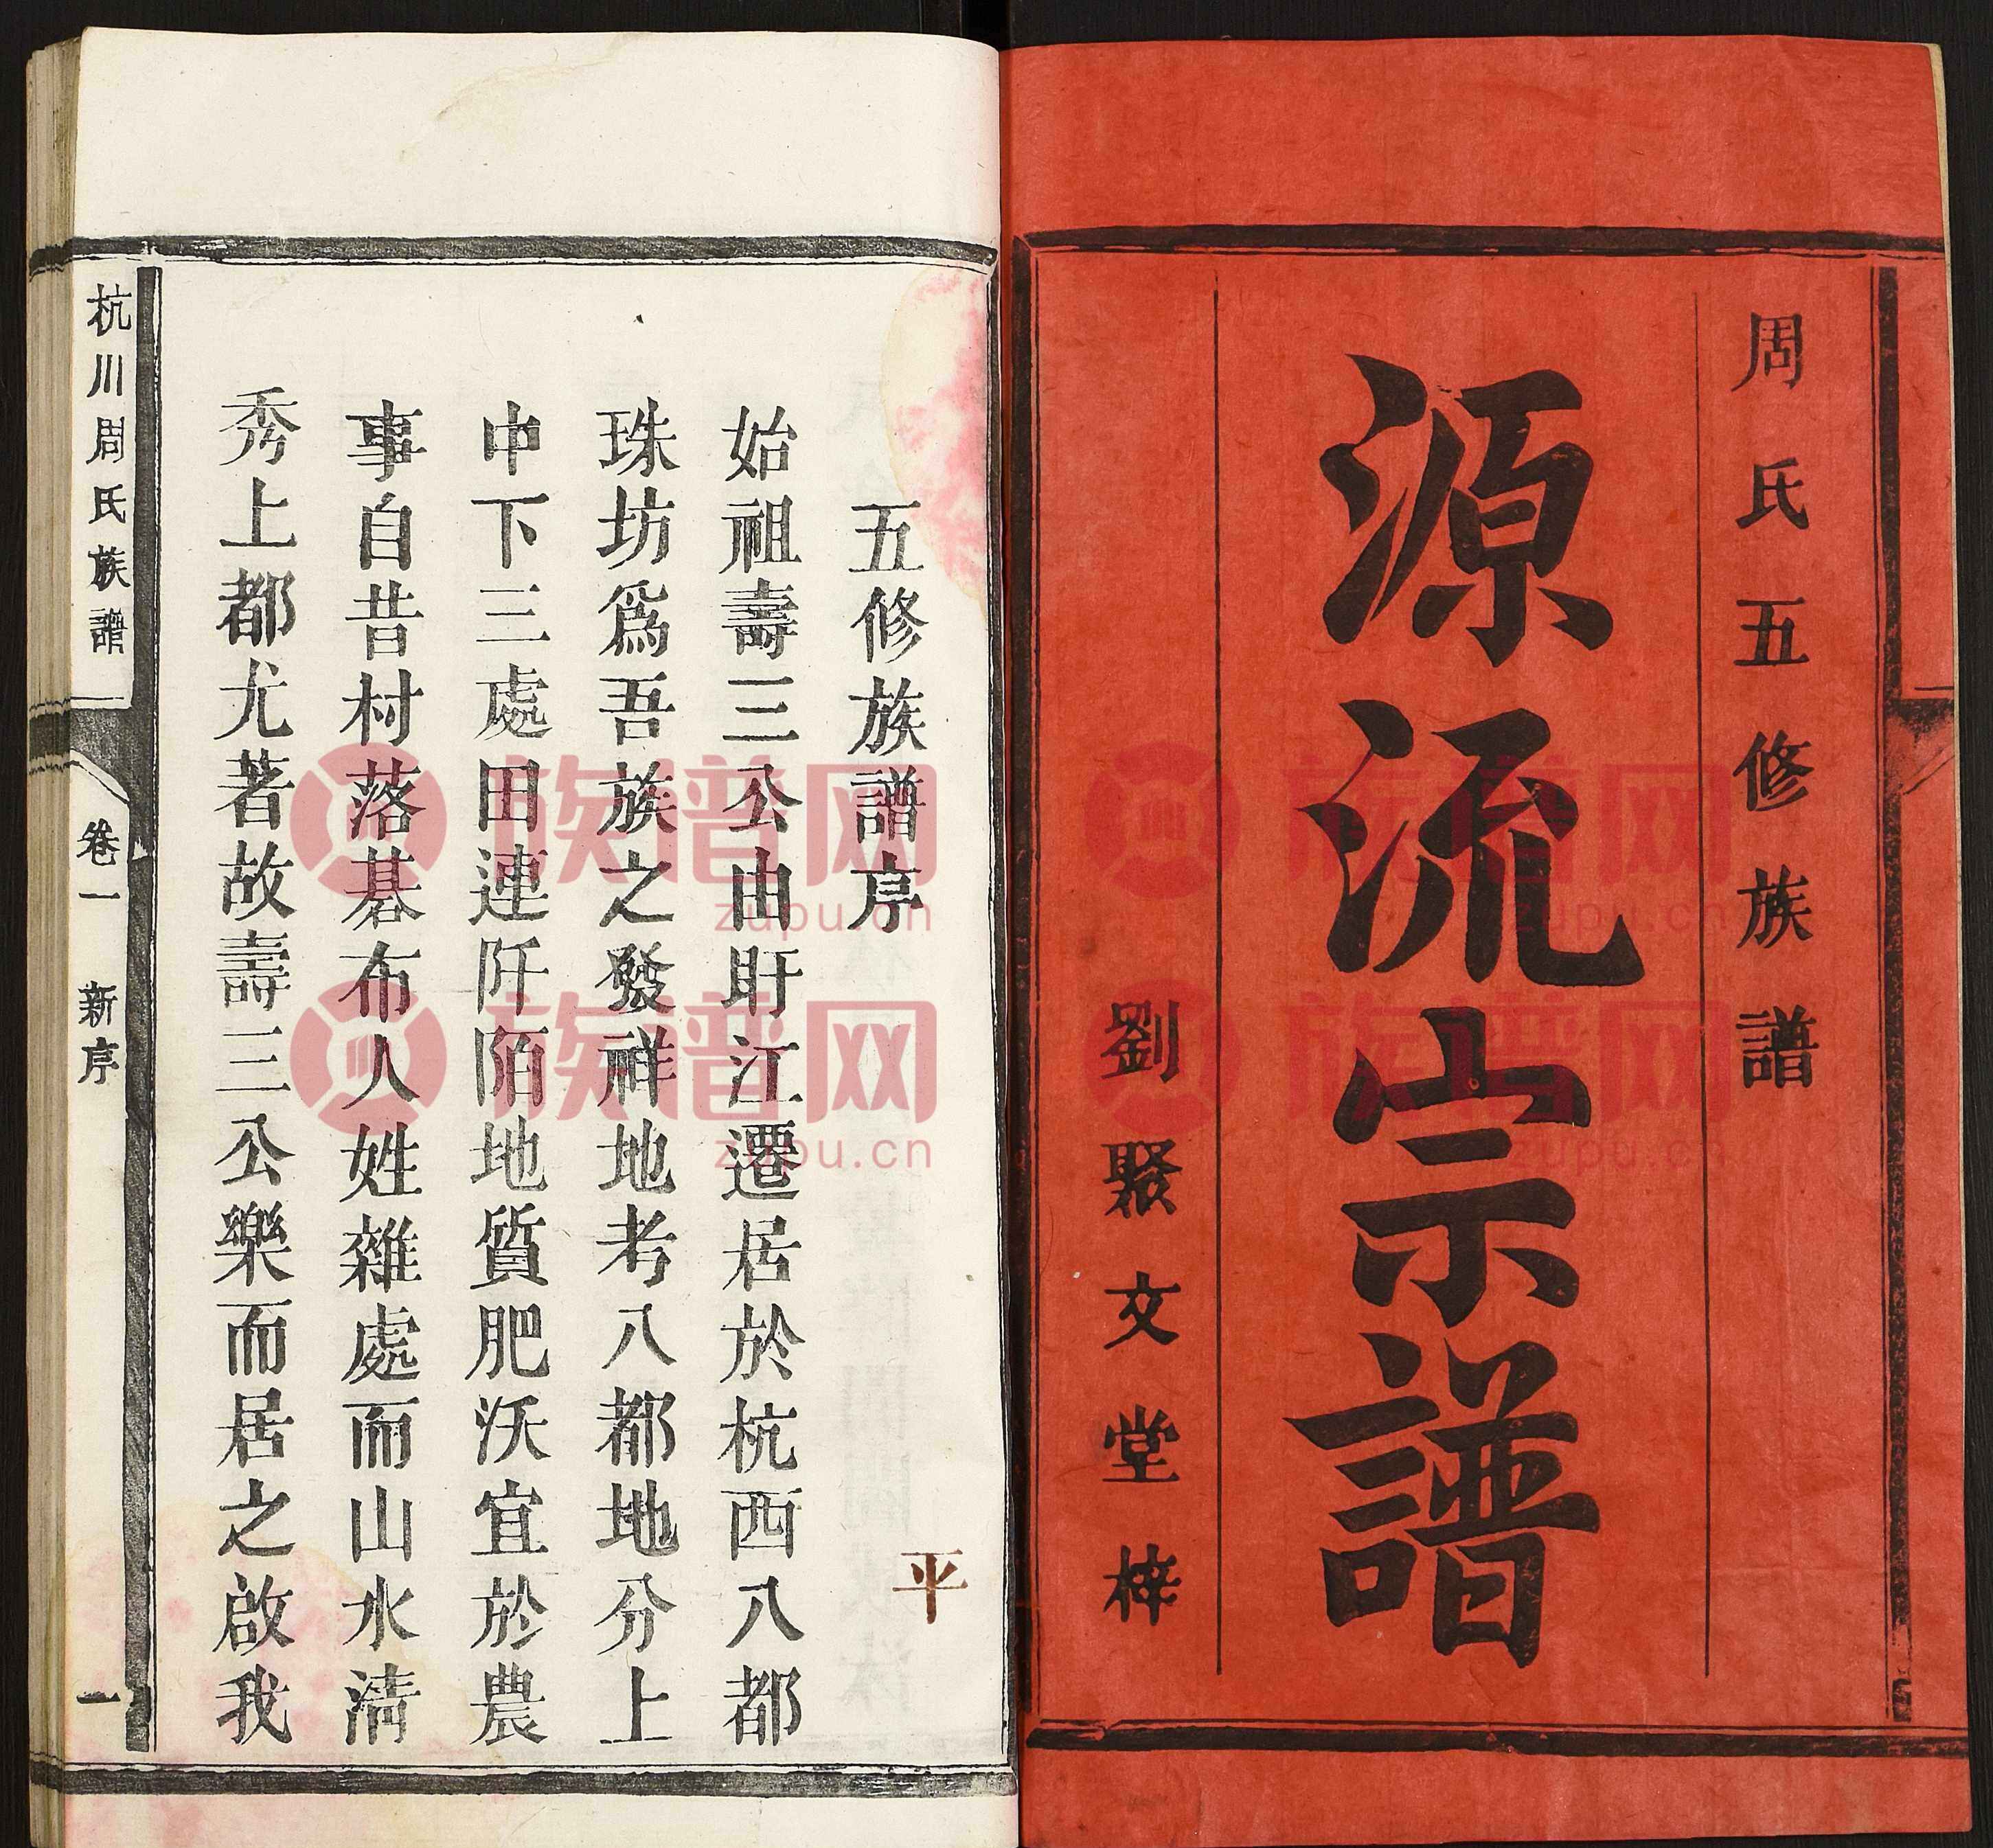 周氏五修族譜
源流宗譜
劉聚文堂梓
五修族譜序
平
始祖壽三公由盱江遷居於杭西八都
珠坊爲吾族之發祥地考八都地分上
中下三處田連阡陌地質肥沃宜於農
事自昔村落棊布人姓雜處而山水清
秀上都尤著故壽三公樂而居之啟我
杭川周氏族譜
卷一 新序
一
族谱网
zupu.cn
族谱网
zupu.cn
族谱网
zupu.cn
族谱网
zupu.cn